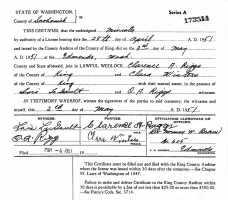 STATE OF WASHINGTON,
County of Snohomish } ss.
Series A
173514
THIS CERTIFIES, that the undersigned Minister
by authority of a License bearing date the 28th day of April A. D. 1951
and issued by the County Auditor of the County of King, did on the 2nd day of May
A. D. 1951 at Edmonds, Wash
County and State aforesaid, join in LAWFUL WEDLOCK, Clarence A. Riggs
of the County of King and Clara Winters
of the County of King with their mutual assent, in the presence of
and O. A. Riggs
IN TESTIMONY WHEREOF, witness the signature of the parties to said ceremony, the witnesses and
myself this 2nd day of May 1951.
WITNESS: PARTIES: OFFICIATING CLERGYMAN OR OFFICER:
Clarence A. Riggs
O. A. Riggs Clara Winters
Edmonds
MAY
This Certificate must be filled out and filed with the King County Auditor
where the license was issued within 30 days after the ceremony.—See Chapter
59, Laws of Washington of 1947.
Failure to make and deliver Certificate to King County Auditor within 30
days is punishable by a fine of not less than $25.00 or more than $300.00.
—See Pierce's Code, Sec. 3714.